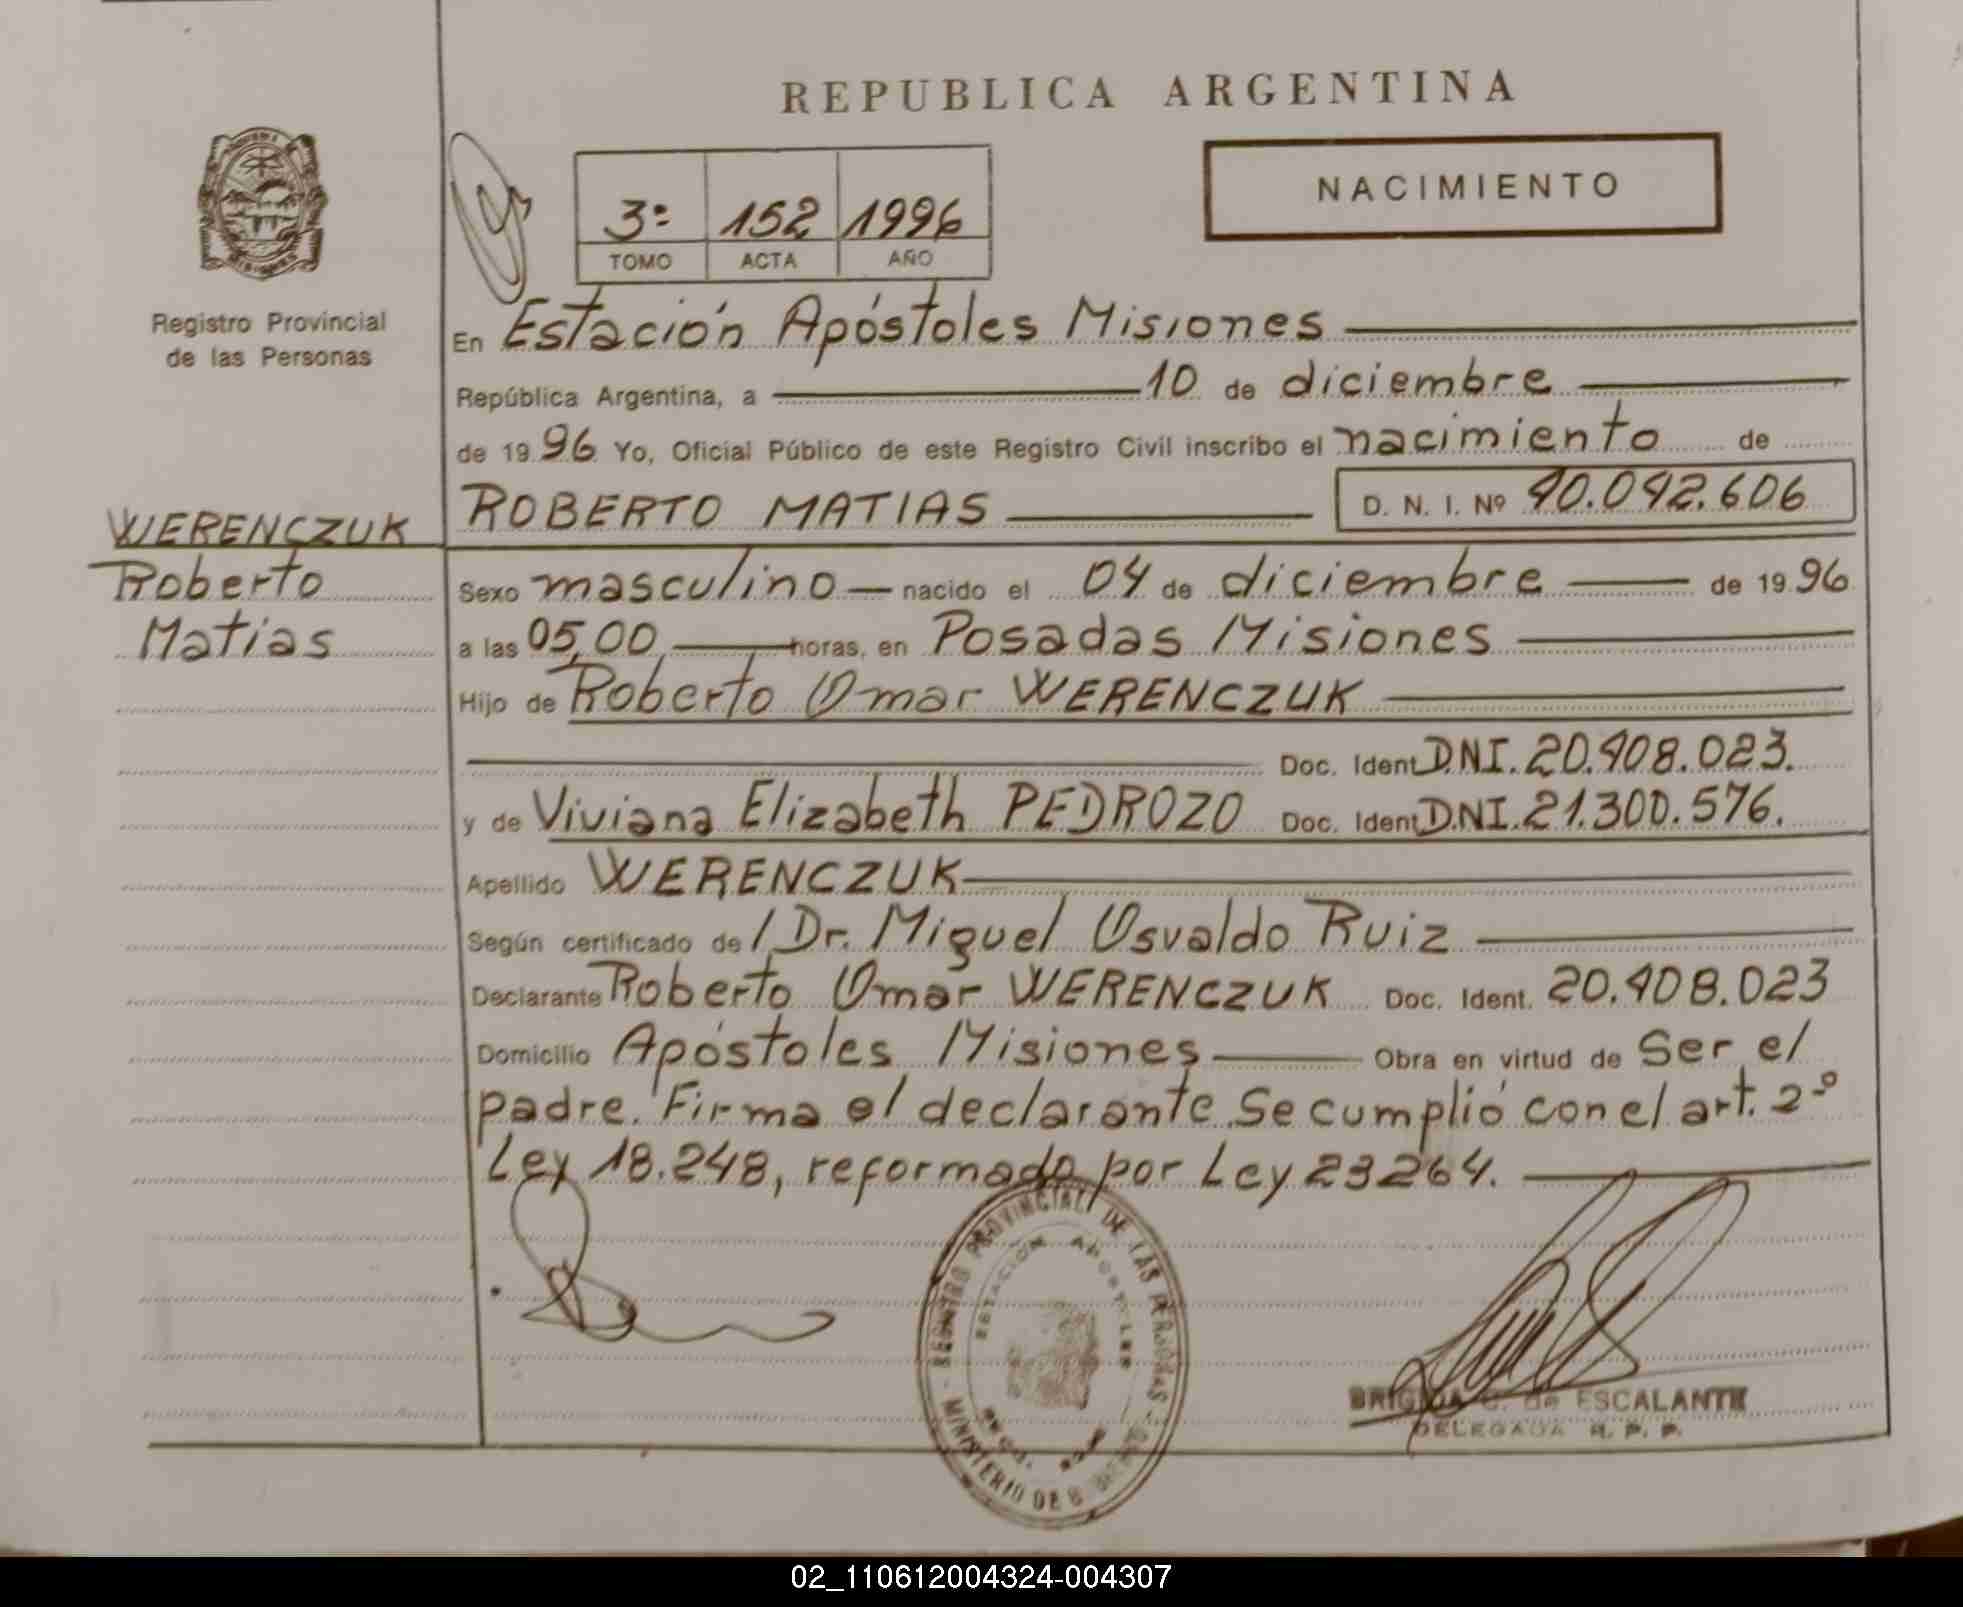 REPUBLICA ARGENTINA
NACIMIENTO
3º 152 1996
TOMO ACTA AÑO
Registro Provincial
de las Personas
En Estación Apóstoles Misiones
República Argentina, a 10 de diciembre
de 1996 Yo, Oficial Público de este Registro Civil inscribo el nacimiento de
ROBERTO MATIAS D. N. I. Nº 40.042.606
WERENCZUK
Roberto
Matias
Sexo masculino nacido el 04 de diciembre de 1996
a las 05,00 horas, en Posadas Misiones
Hijo de Roberto Omar WERENCZUK
Doc. Ident DNI. 20.408.023.
y de Viviana Elizabeth PEDROZO Doc. Ident DNI. 21.300.576.
Apellido WERENCZUK
Según certificado de / Dr. Miguel Osvaldo Ruiz
Declarante Roberto Omar WERENCZUK Doc. Ident. 20.408.023
Domicilio Apóstoles Misiones Obra en virtud de Ser el
padre. Firma el declarante. Se cumplió con el art. 2º
Ley 18.248, reformado por Ley 23264.
REGISTRO PROVINCIAL DE LAS PERSONAS
ESTACION APOSTOLES
MINISTERIO DE
BRIGIDA G. de ESCALANTE
DELEGADA R. P. P.
02_110612004324-004307